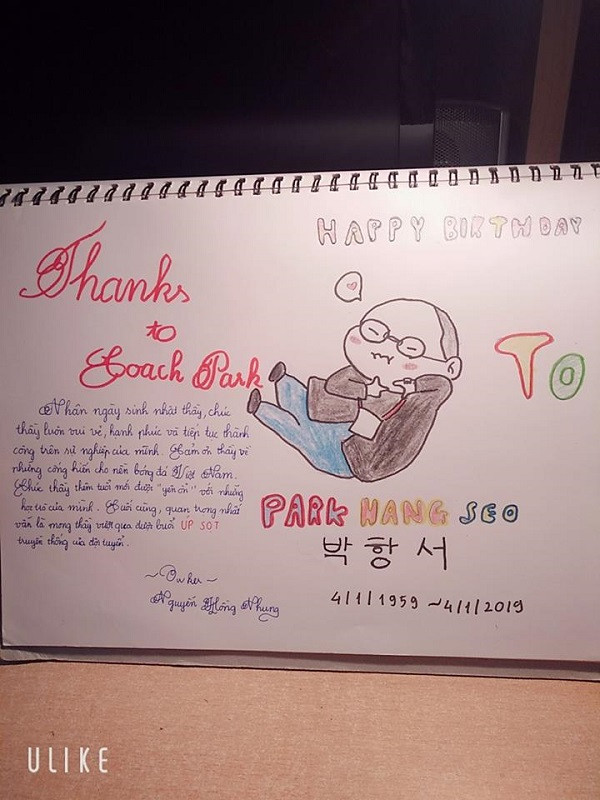 Thanks
to
Coach Park
Nhân ngày sinh nhật thầy, chúc
thầy luôn vui vẻ, hạnh phúc và tiếp tục thành
công trên sự nghiệp của mình. Cảm ơn thầy vì
những cống hiến cho nền bóng đá Việt Nam.
Chúc thầy thêm tuổi mới được "yên ổn" với những
học trò của mình. Cuối cùng, quan trọng nhất
vẫn là mong thầy vượt qua được buổi ÚP SỌT
truyền thống của đội tuyển.
~Owner~
Nguyễn Hồng Nhung
HAPPY BIRTHDAY
TO
PARK HANG SEO
박항서
4/1/1959 ~ 4/1/2019
ULIKE